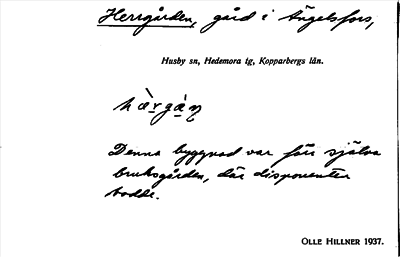 Herrgården, gård i Ängelsfors,
Husby sn, Hedemora tg, Kopparbergs län.
hær̀gàṇ
Denna byggnad var förr själva
bruksgården, där disponenten
bodde.
OLLE HILLNER 1937.